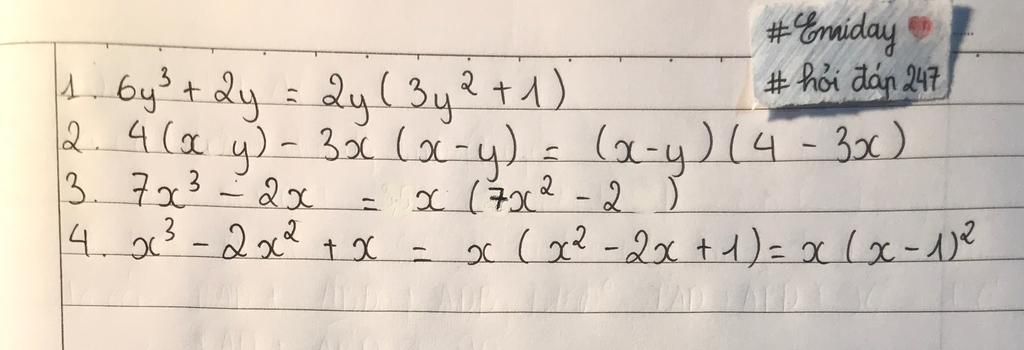 # Emiday
# hỏi đáp 247
1. 6y³ + 2y = 2y ( 3y² + 1 )
2. 4 ( x y ) - 3x ( x - y ) = ( x - y ) ( 4 - 3x )
3. 7x³ - 2x = x ( 7x² - 2 )
4. x³ - 2x² + x = x ( x² - 2x + 1 ) = x ( x - 1 )²